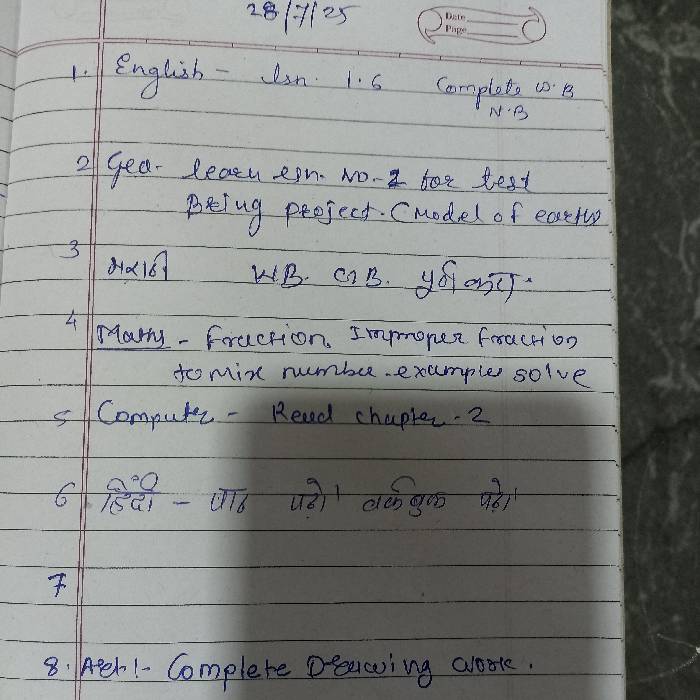 28/7/25
Date
Page
1. English - lsn. 1.6 Complete W.B
N.B
2 Geo- learn lsn. No-2 for test
Bring project. (Model of earth)
3 मराठी WB. CB. पूर्ण करा.
4 Maths - fraction. Improper fraction
to mix number. examples solve
5 Computer - Read chapter-2
6 हिंदी - पाठ पढ़ो। वर्कबुक पढ़ो।
7
8. Art:- Complete Drawing work.